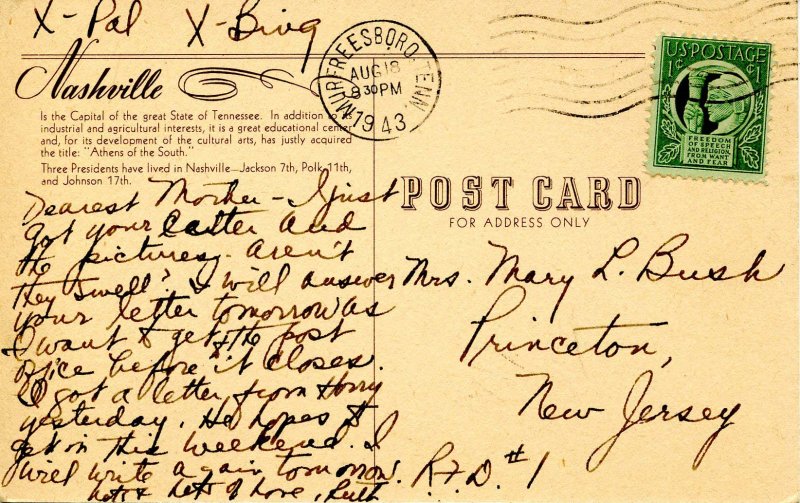 X-Pal X-Bing
MURFREESBORO, TENN.
AUG 18
8 30 PM
1943
U.S. POSTAGE
1¢ 1¢
FREEDOM
OF SPEECH
AND RELIGION,
FROM WANT
AND FEAR
Nashville
Is the Capital of the great State of Tennessee. In addition to its
industrial and agricultural interests, it is a great educational center
and, for its development of the cultural arts, has justly acquired
the title: "Athens of the South."
Three Presidents have lived in Nashville—Jackson 7th, Polk 11th,
and Johnson 17th.
Dearest Mother - I just
got your letter and
the pictures. Aren't
they swell? I will answer
your letter tomorrow as
I want to get to the post
office before it closes.
I got a letter from Harry
yesterday. He hopes to
get in this weekend. I
will write again tomorrow.
Lots & Lots of love, Ruth
POST CARD
FOR ADDRESS ONLY
Mrs. Mary L. Bush
Princeton,
New Jersey
R.F.D. #1